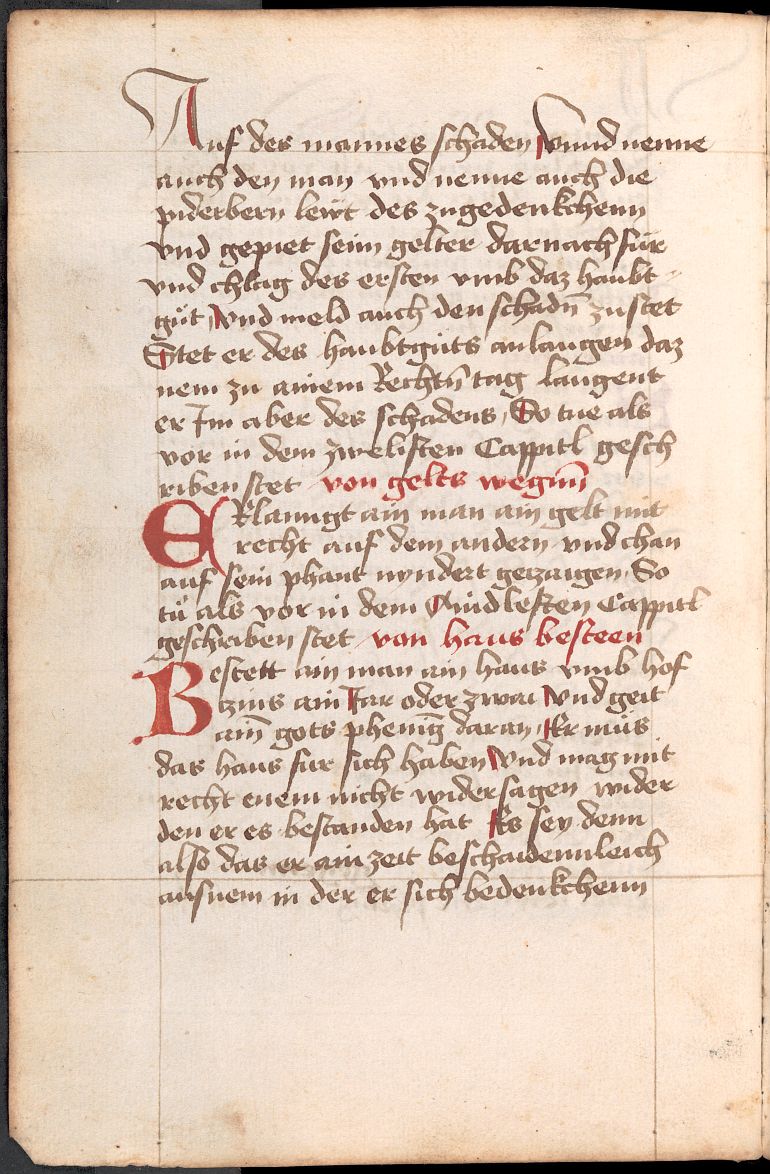 Auf des mannes schaden vnnd nenne
auch den man vnd nenne auch die
piderbern lewt des zugedenkchenn
vnd gepiet seim gelter darnach für
vnd chlag des ersten vmb daz haubt
gůt vnd meld auch den schadn̄ zustet
Stet er des haubtguts anlaugen daz
nem zu ainem Rechtn̄ tag laugent
er Im aber des schadens So tue als
vor in dem zweliften Cappitl gesch
riben stet von gelts wegn̄n
ERlanngt ain man ain gelt mit
recht auf dem andern vnd chan
auf sein phant nyndert geczaigen So
tů als vor in dem Aindlesten Cappitl
geschriben stet von haus besteen
Bestett ain man ain haus vmb hof
czins ain Jar oder zwai vnd geit
ain̄ gots phenīg daran Er můs
das haus fur sich haben vnd mag mit
recht enem nicht wider sagen wider
den er es bestanden hat Es sey denn
also das er ain zeit beschaidennleich
ausnem in der er sich bedenkchenn